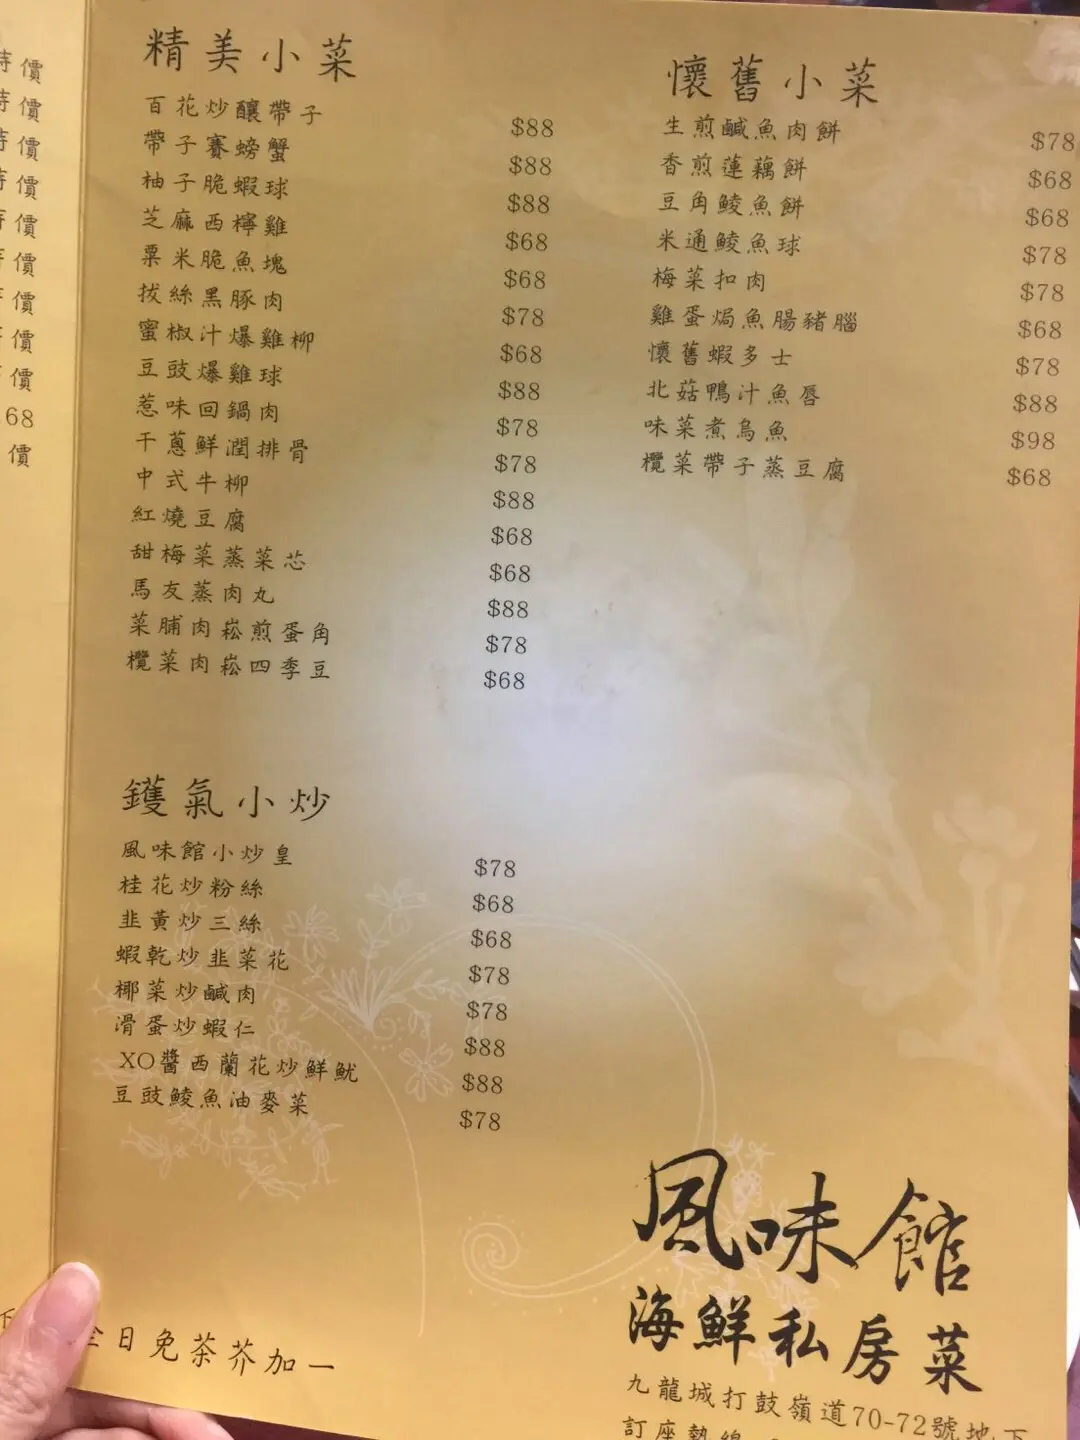 時價
時價
時價
時價
時價
價
價
價
價
68
價
精美小菜
百花炒釀帶子 $88
帶子賽螃蟹 $88
柚子脆蝦球 $88
芝麻西檸雞 $68
粟米脆魚塊 $68
拔絲黑豚肉 $78
蜜椒汁爆雞柳 $68
豆豉爆雞球 $88
惹味回鍋肉 $78
干蔥鮮潤排骨 $78
中式牛柳 $88
紅燒豆腐 $68
甜梅菜蒸菜芯 $68
馬友蒸肉丸 $88
菜脯肉崧煎蛋角 $78
欖菜肉崧四季豆 $68
鑊氣小炒
風味館小炒皇 $78
桂花炒粉絲 $68
韭黃炒三絲 $68
蝦乾炒韭菜花 $78
椰菜炒鹹肉 $78
滑蛋炒蝦仁 $88
XO醬西蘭花炒鮮魷 $88
豆豉鯪魚油麥菜 $78
懷舊小菜
生煎鹹魚肉餅 $78
香煎蓮藕餅 $68
豆角鯪魚餅 $68
米通鯪魚球 $78
梅菜扣肉 $78
雞蛋焗魚腸豬腦 $68
懷舊蝦多士 $78
北菇鴨汁魚唇 $88
味菜煮烏魚 $98
欖菜帶子蒸豆腐 $68
全日免茶芥加一
風味館
海鮮私房菜
九龍城打鼓嶺道70-72號地下
訂座熱線